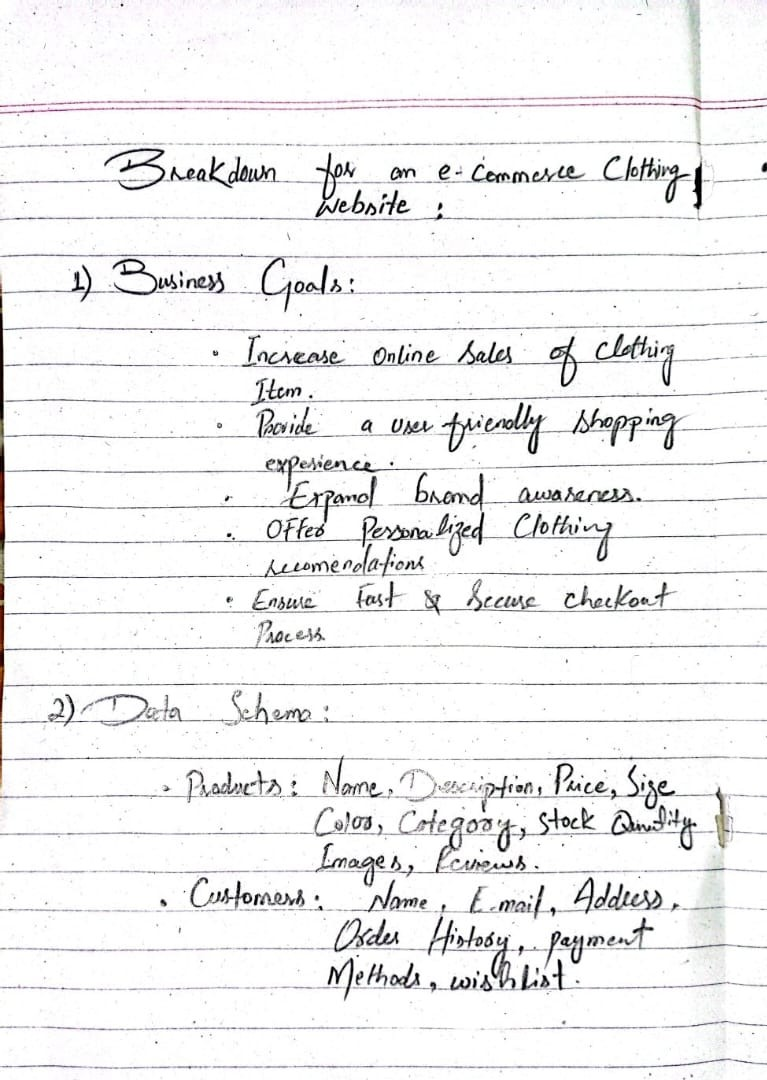 Breakdown for an e-Commerce Clothing
Website :
1) Business Goals:
• Increase Online Sales of Clothing
Item.
• Provide a user friendly shopping
experience.
• Expand brand awareness.
• Offer Personalized Clothing
recomendations
• Ensure Fast & Secure checkout
Process
2) Data Schema:
• Products: Name, Description, Price, Size
Color, Category, Stock Quantity
Images, Reviews.
• Customers: Name, E-mail, Address,
Order History, payment
Methods, wishlist.